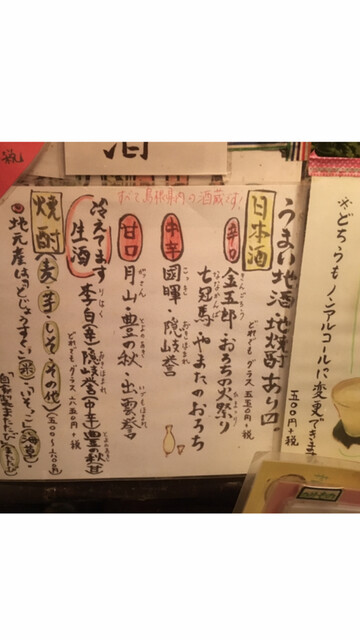 酒
※どちらもノンアルコールに変更できます
五〇〇円+税
うまい地酒・地焼酎あり〼
すべて島根県内の酒蔵です!
日本酒
どれでもグラス 五五〇円+税
辛口
金五郎・おろちの火祭り
七冠馬・やまたのおろち
中辛
國暉・隠岐誉
甘口
月山・豊の秋・出雲誉
冷えてます
生酒
李白(辛)隠岐誉(中辛)豊の秋(甘)
どれでもグラス 六五〇円+税
焼酎
(麦・芋・しそ・その他)
地元産は